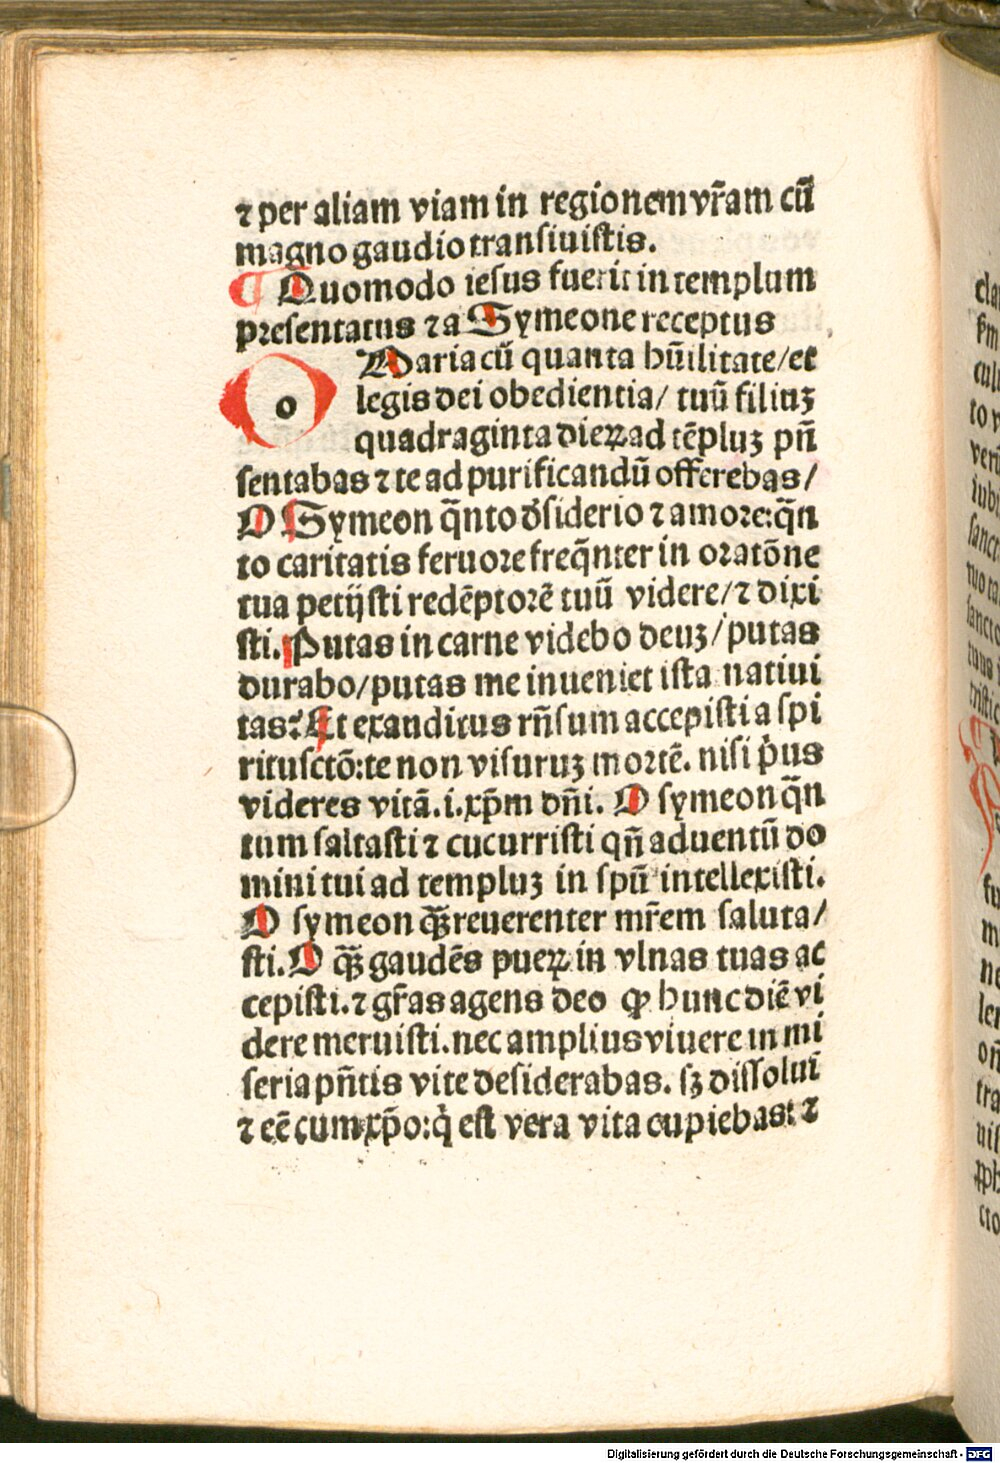 ⁊ per aliam viam in regionem vr̃am cū
magno gaudio transiuistis.
¶ Quomodo iesus fuerit in templum
presentatus ⁊ a Symeone receptus
O Maria cū quanta hūilitate/et
legis dei obedientia/ tuū filiuꝫ
quadraginta dieꝝ ad tēpluꝫ pn̄
sentabas ⁊ te ad purificandū offerebas/
O Symeon q̄nto d̕siderio ⁊ amore:q̄n
to caritatis feruore freq̄nter in oratōne
tua petijsti redēptorē tuū videre/⁊ dixi
sti. Putas in carne videbo deuꝫ/putas
durabo/putas me inueniet ista natiui
tas? Et exauditus rn̄sum accepisti a spi
ritu sctō:te non visuruꝫ mortē. nisi p̕us
videres vitā.i.xp̄m dn̄i. O symeon q̄n
tum saltasti ⁊ cucurristi qn̄ aduentū do
mini tui ad templuꝫ in spū intellexisti.
O symeon qꝫ̄ reuerenter mr̃em saluta/
sti. O qꝫ̄ gaudēs pueꝝ in vlnas tuas ac
cepisti.⁊ gr̃as agens deo ꝙ hunc diē vi
dere meruisti.nec amplius viuere in mi
seria pn̄tis vite desiderabas. sꝫ dissolui
⁊ eē cum xp̄o:q̕ est vera vita cupiebas: ⁊
Digitalisierung gefördert durch die Deutsche Forschungsgemeinschaft - DFG